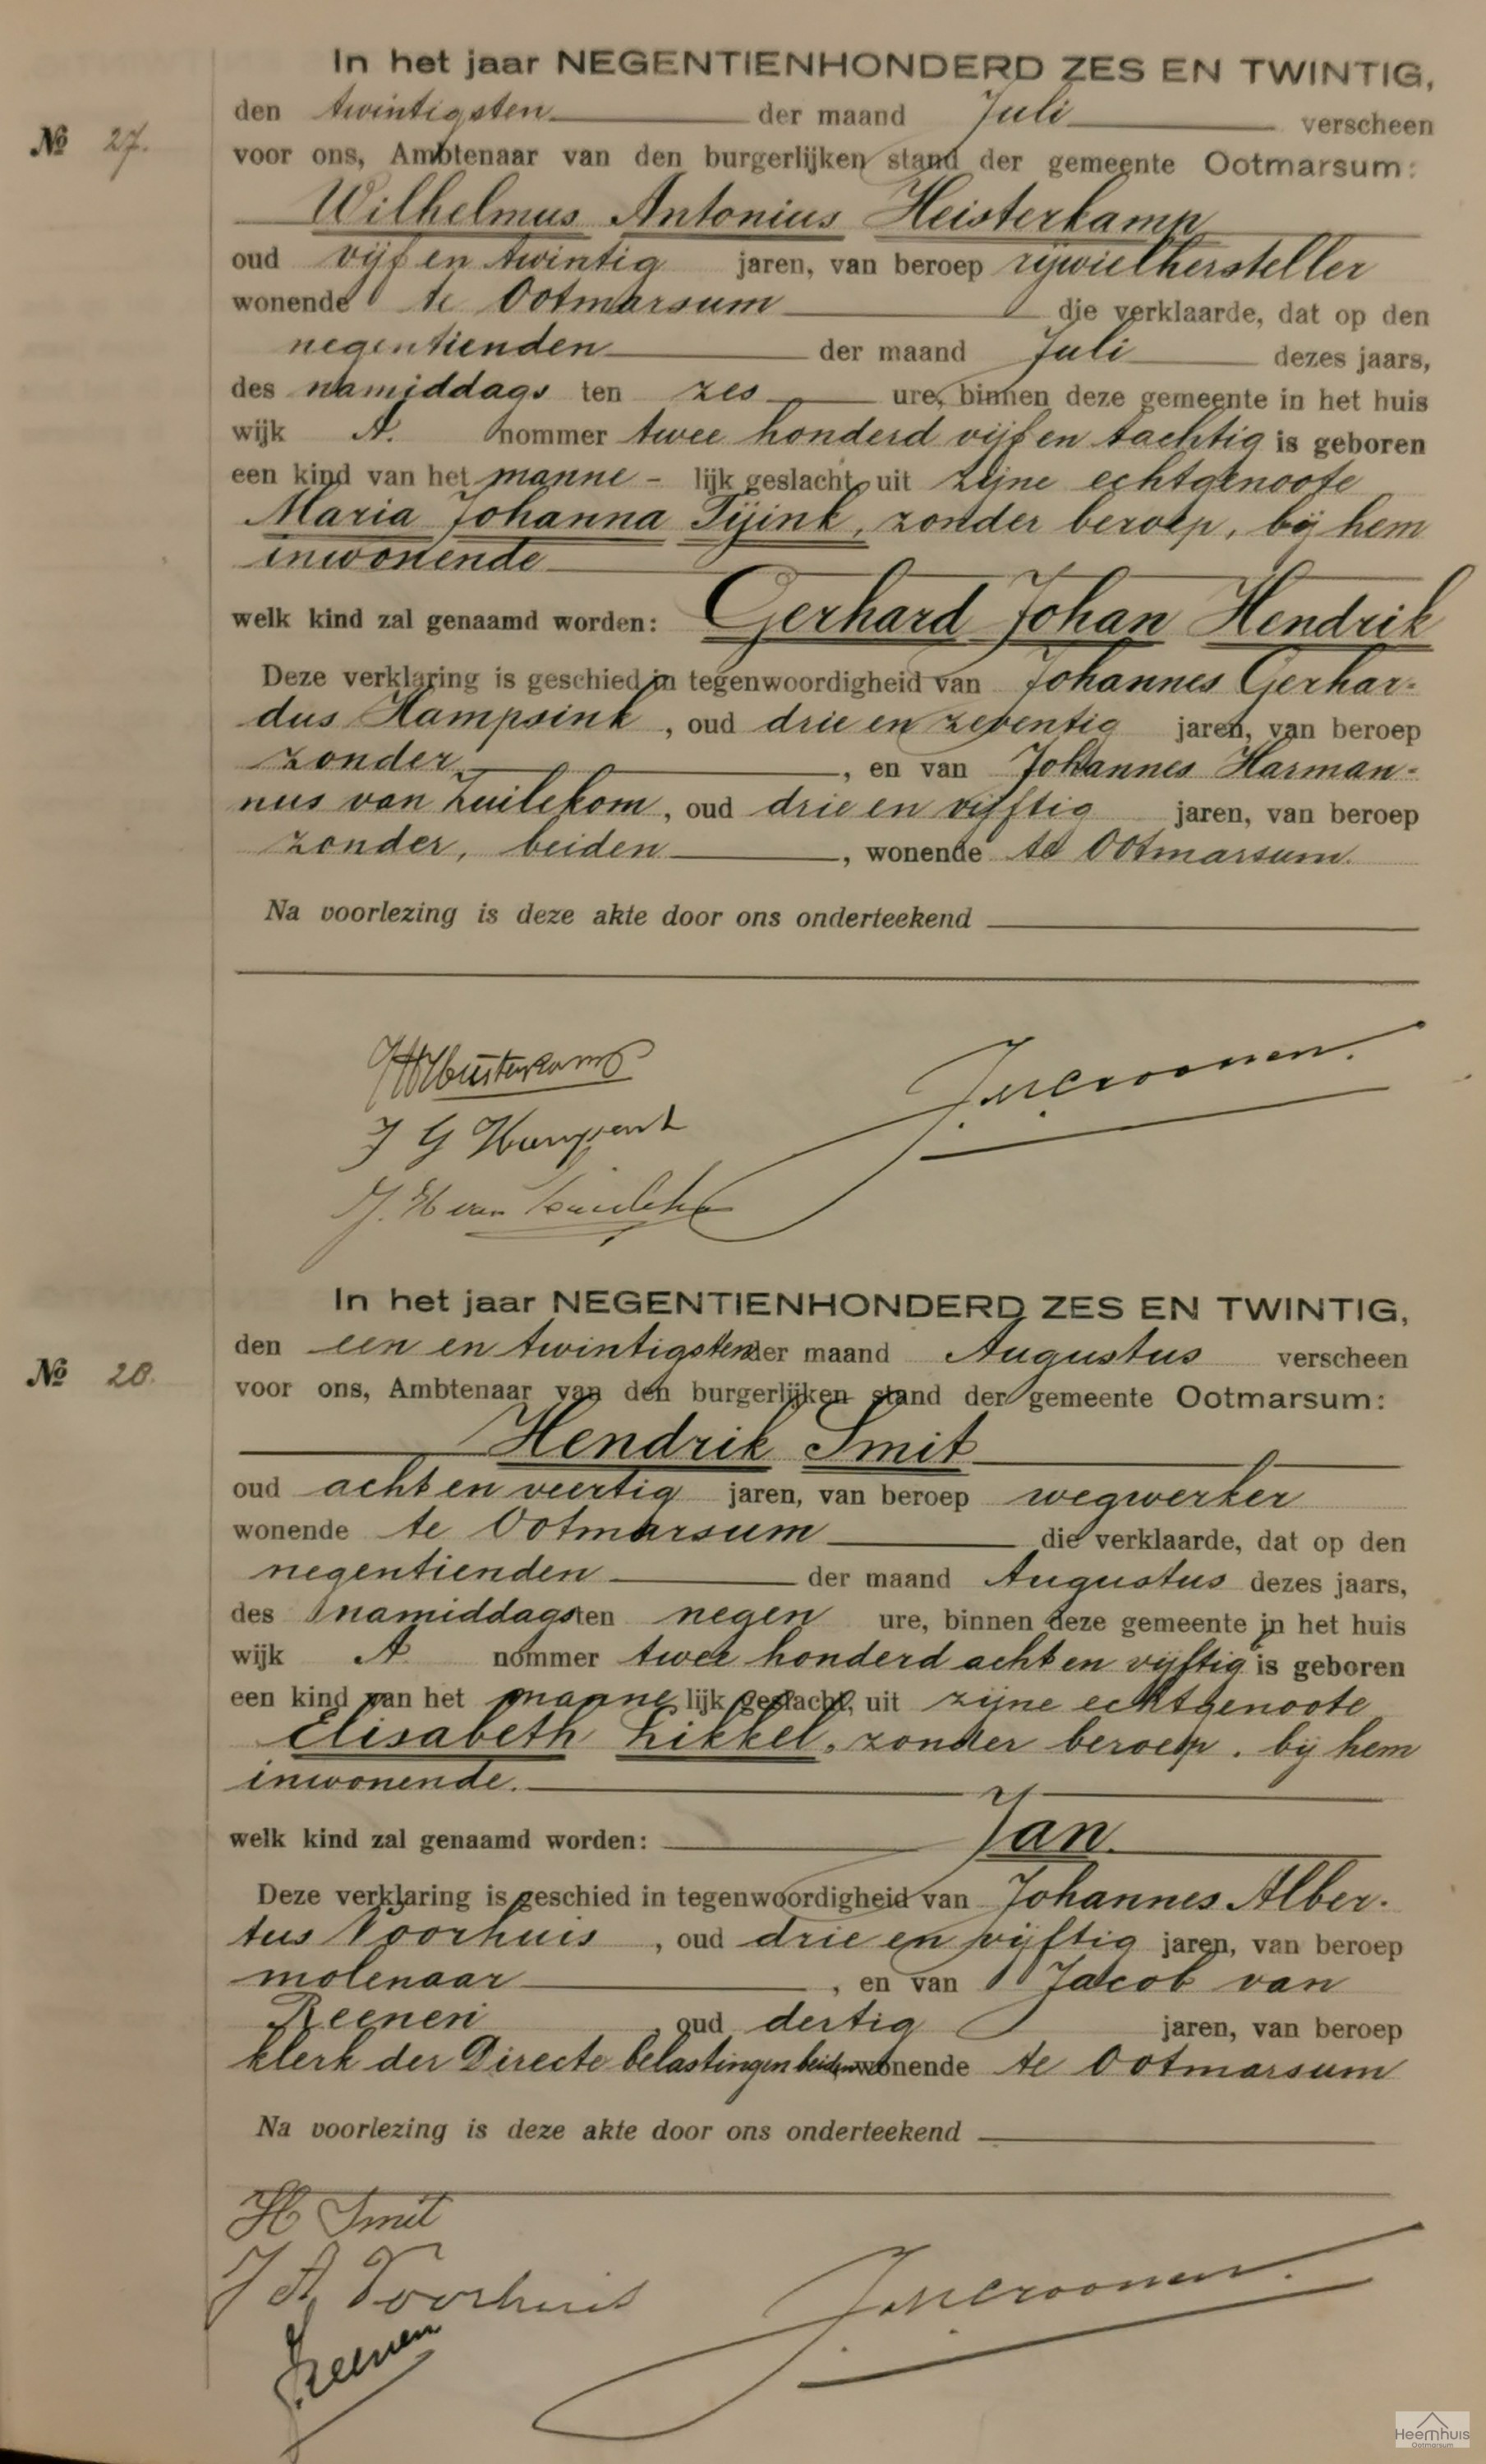 In het jaar NEGENTIENHONDERD ZES EN TWINTIG,
den twintigsten der maand Juli verscheen
№ 27.
voor ons, Ambtenaar van den burgerlijken stand der gemeente Ootmarsum:
Wilhelmus Antonius Heisterkamp
oud vijf en twintig jaren, van beroep rijwielhersteller
wonende te Ootmarsum die verklaarde, dat op den
negentienden der maand Juli dezes jaars,
des namiddags ten zes ure, binnen deze gemeente in het huis
wijk A. nommer twee honderd vijf en tachtig is geboren
een kind van het manne - lijk geslacht, uit zijne echtgenoote
Maria Johanna Tijink, zonder beroep, bij hem
inwonende
welk kind zal genaamd worden: Gerhard Johan Hendrik
Deze verklaring is geschied in tegenwoordigheid van Johannes Gerhar-
dus Kampsink, oud drie en zeventig jaren, van beroep
zonder, en van Johannes Harman-
nus van Zuilekom, oud drie en vijftig jaren, van beroep
zonder, beiden, wonende te Ootmarsum.
Na voorlezing is deze akte door ons onderteekend
J G Kampsink
J. H van
In het jaar NEGENTIENHONDERD ZES EN TWINTIG,
den een en twintigsten der maand Augustus verscheen
№ 28.
voor ons, Ambtenaar van den burgerlijken stand der gemeente Ootmarsum:
Hendrik Smit
oud acht en veertig jaren, van beroep wegwerker
wonende te Ootmarsum die verklaarde, dat op den
negentienden der maand Augustus dezes jaars,
des namiddags ten negen ure, binnen deze gemeente in het huis
wijk A nommer twee honderd acht en vijftig is geboren
een kind van het manne lijk geslacht, uit zijne echtgenoote
Elisabeth Zikkel, zonder beroep, bij hem
inwonende.
welk kind zal genaamd worden: Jan.
Deze verklaring is geschied in tegenwoordigheid van Johannes Alber-
tus Voorhuis, oud drie en vijftig jaren, van beroep
molenaar, en van Jacob van
Reenen, oud dertig jaren, van beroep
klerk der Directe belastingen beiden wonende te Ootmarsum
Na voorlezing is deze akte door ons onderteekend
H Smit
J A Voorhuis
Reenen
Heemhuis
Ootmarsum